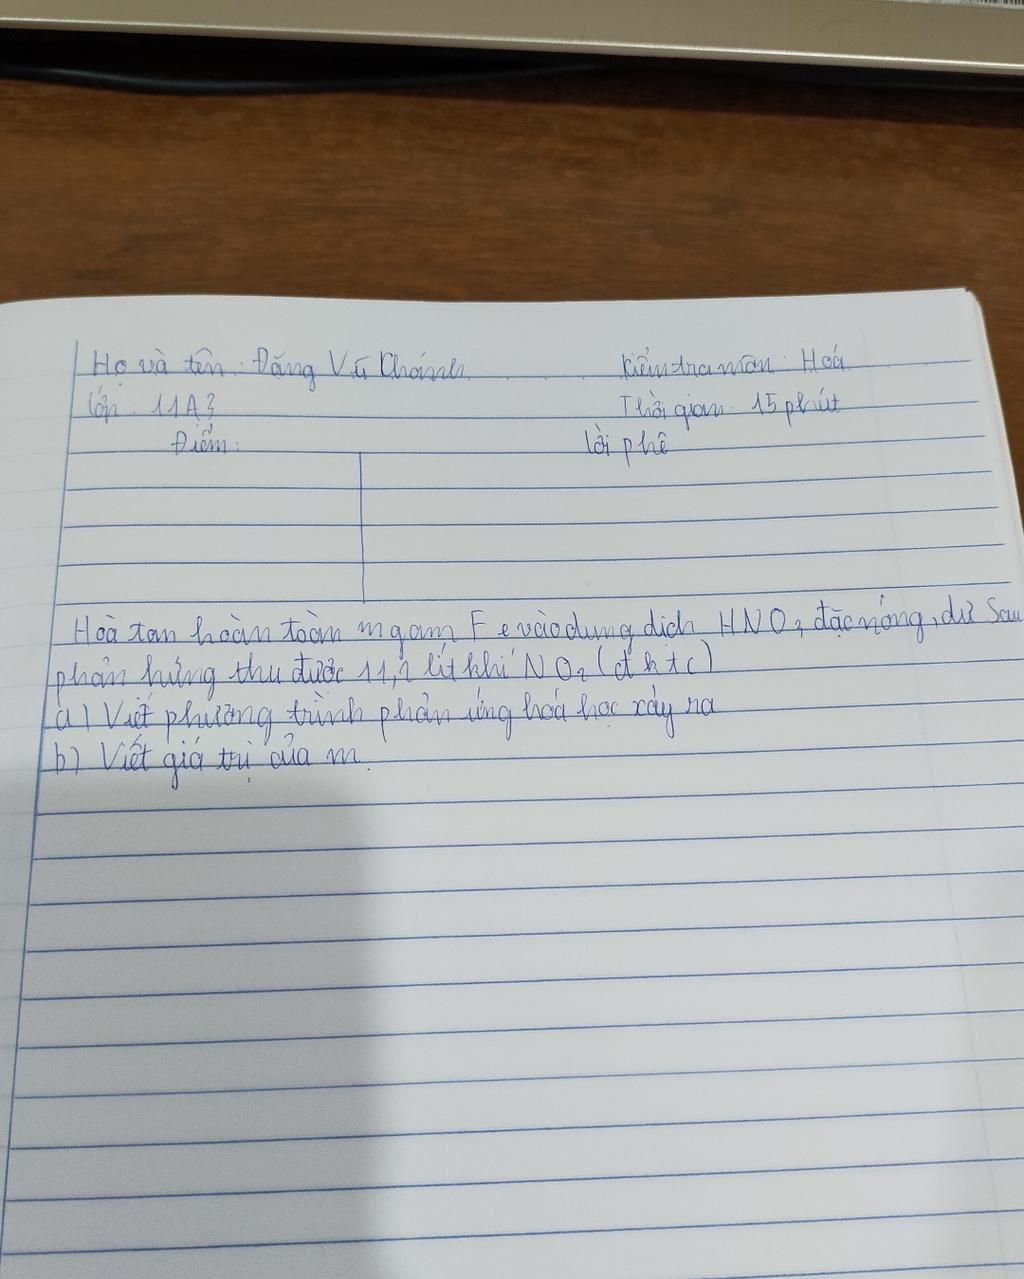 Họ và tên: Đặng Vũ Khánh Kiểm tra môn: Hoá
Lớp: 11A3 Thời gian: 15 phút
Điểm: Lời phê
Hoà tan hoàn toàn m gam Fe vào dung dịch HNO3 đặc nóng, dư Sau
phản hứng thu được 11,2 lít khí NO2 (đktc)
a) Viết phương trình phản ứng hoá học xảy ra
b) Viết giá trị của m.